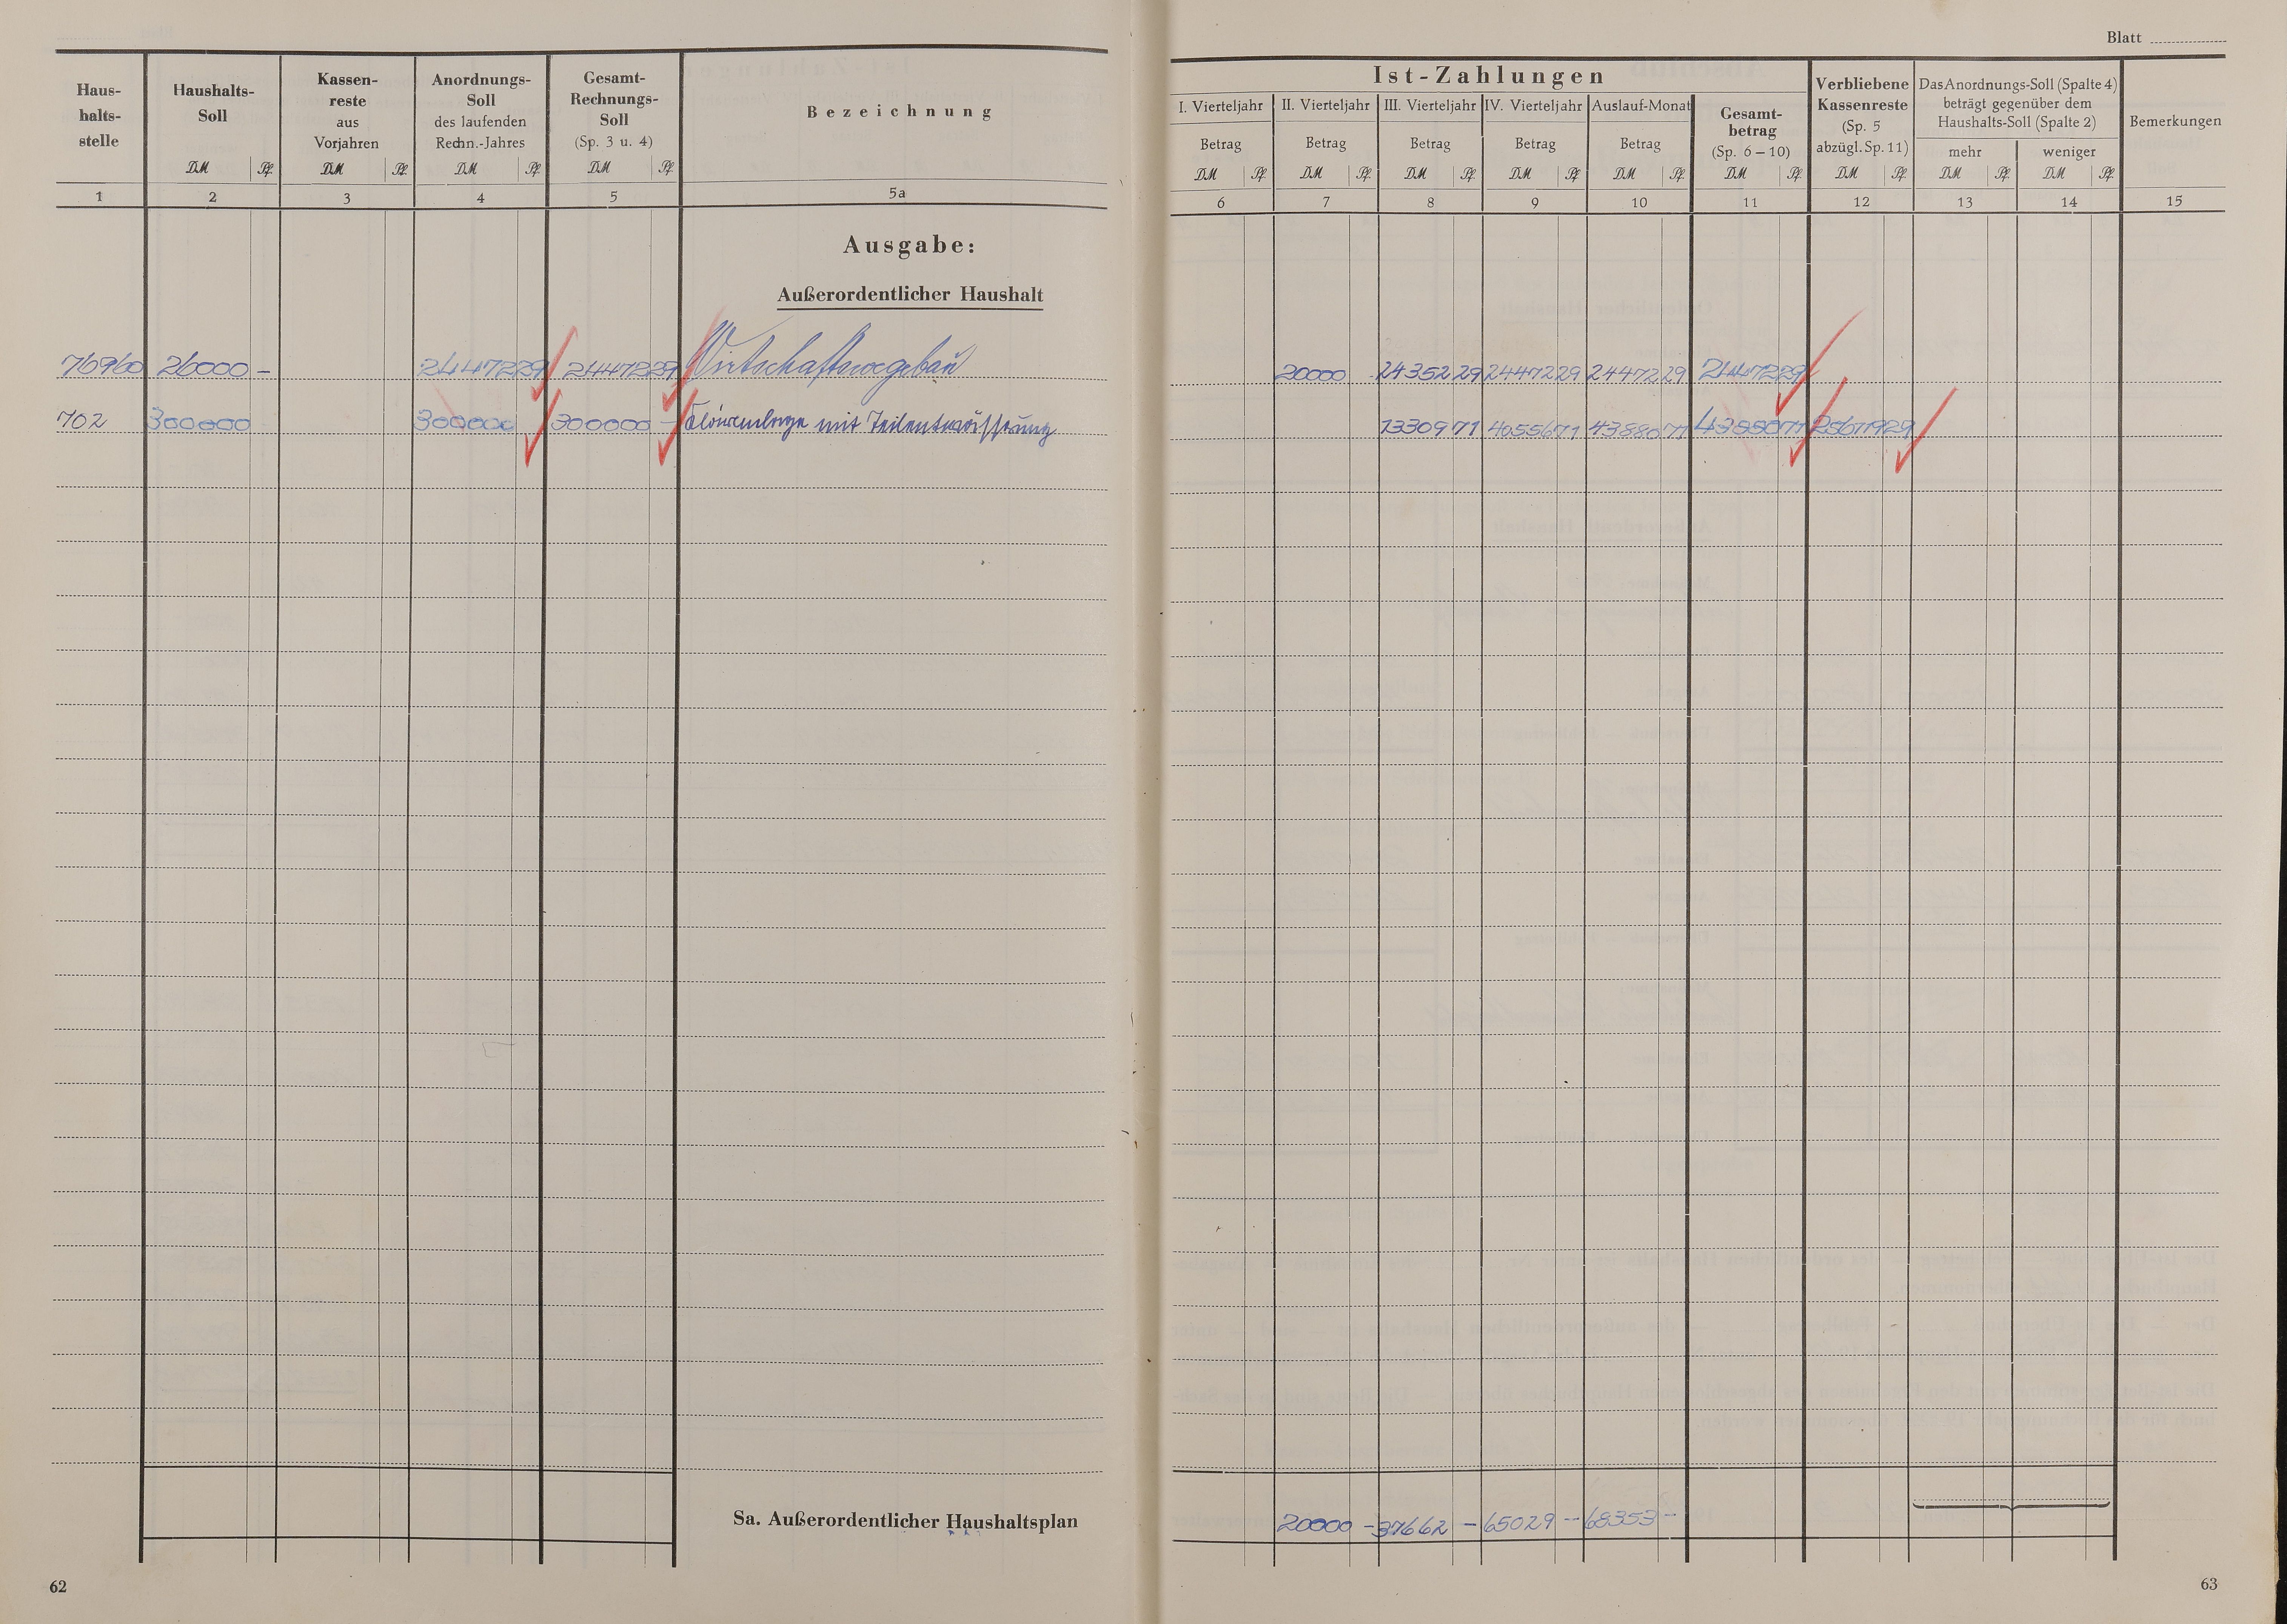 Blatt
Haus-
halts-
stelle
Haushalts-
Soll
DM Pf.
Kassen-
reste
aus
Vorjahren
DM Pf.
Anordnungs-
Soll
des laufenden
Rechn.-Jahres
DM Pf.
Gesamt-
Rechnungs-
Soll
(Sp. 3 u. 4)
DM Pf.
Bezeichnung
Ist-Zahlungen
I. Vierteljahr
Betrag
DM Pf.
II. Vierteljahr
Betrag
DM Pf.
III. Vierteljahr
Betrag
DM Pf.
IV. Vierteljahr
Betrag
DM Pf.
Auslauf-Monat
Betrag
DM Pf.
Gesamt-
betrag
(Sp. 6 – 10)
DM Pf.
Verbliebene
Kassenreste
(Sp. 5
abzügl. Sp. 11)
DM Pf.
Das Anordnungs-Soll (Spalte 4)
beträgt gegenüber dem
Haushalts-Soll (Spalte 2)
mehr
DM Pf.
weniger
DM Pf.
Bemerkungen
1 2 3 4 5 5a 6 7 8 9 10 11 12 13 14 15
Ausgabe:
Außerordentlicher Haushalt
76960 26000 – 24472 29 24472 29 Wirtschaftswegebau 20000 24352 29 24472 29 24472 29 24472 29
702 300000 300000 300000 – mit Teilentwässerung 13309 71 40556 71 43880 71 43880 71 256119 29
Sa. Außerordentlicher Haushaltsplan 20000 – 37662 – 65029 – 68353 –
62
63